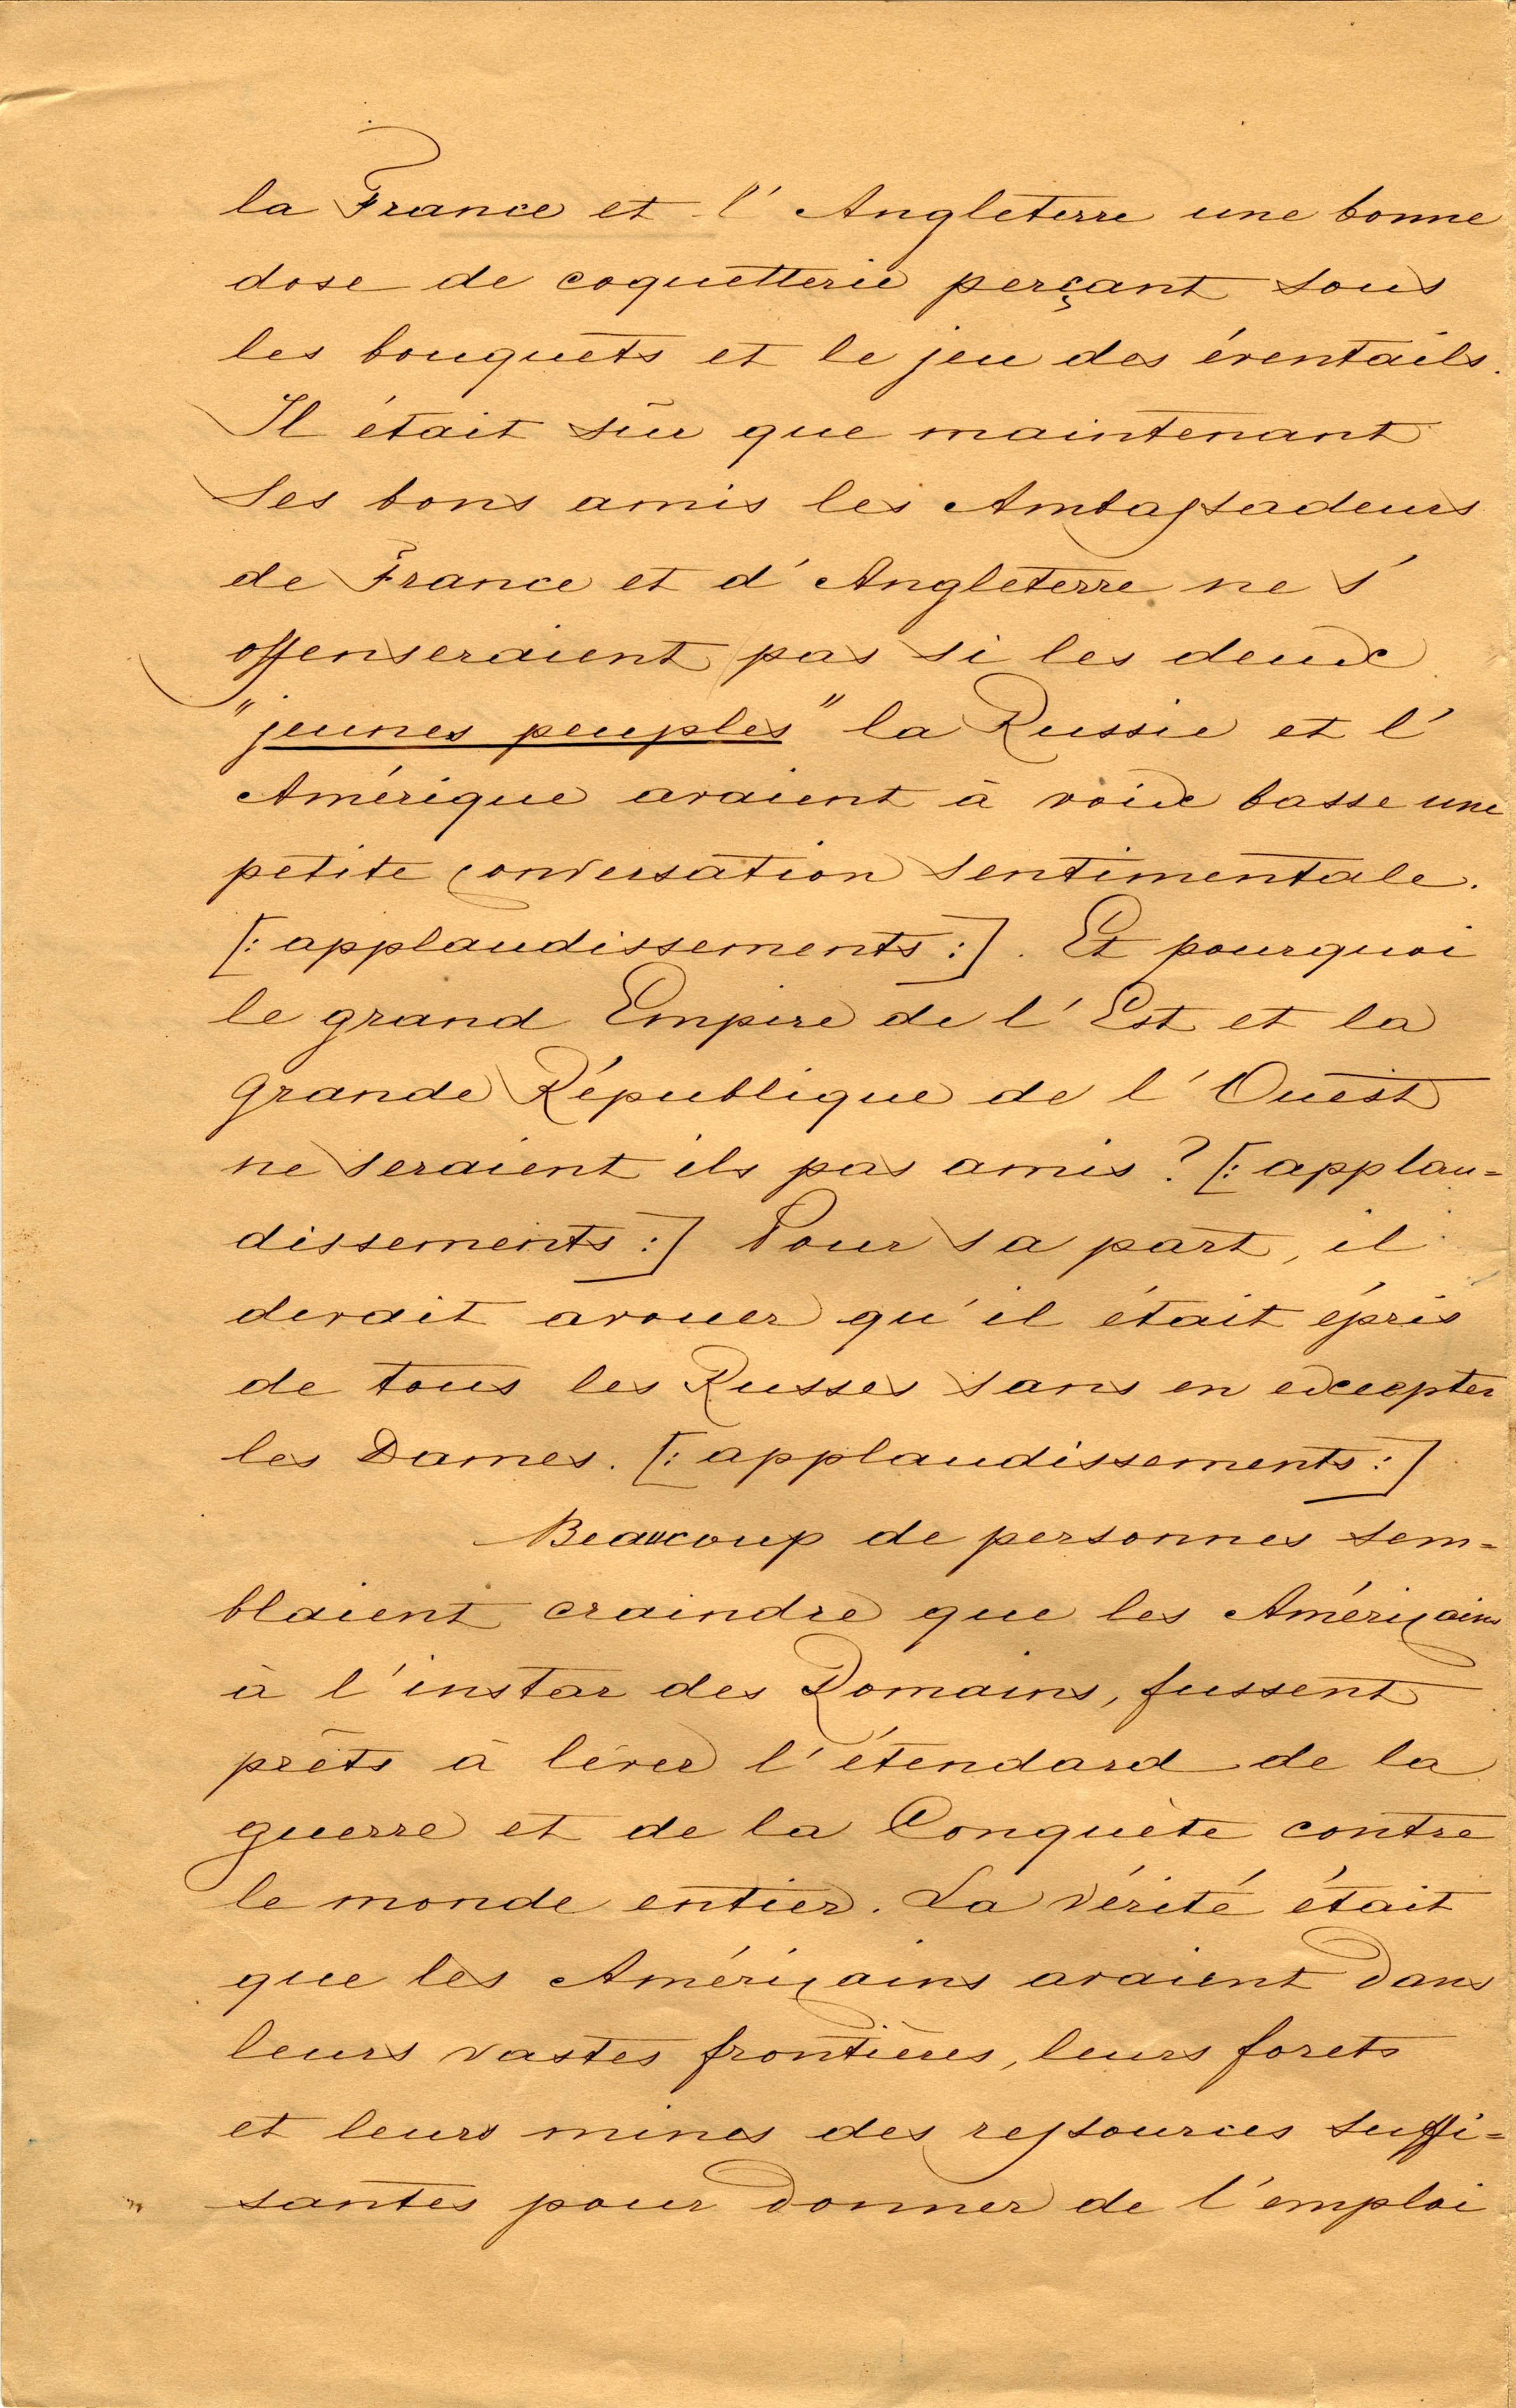 la France et l' Angleterre une bonne
dose de coquetterie perçant sous
les bouquets et le jeu des éventails.
Il était sûr que maintenant
ses bons amis les Ambassadeurs
de France et d' Angleterre ne s'
offenseraient pas si les deux
"jeunes peuples" la Russie et l'
Amérique avaient à voix basse une
petite conversation sentimentale.
[: applaudissements :]. Et pourquoi
le grand Empire de l' Est et la
grande République de l' Ouest
ne seraient ils pas amis? [: applau=
dissements :] Pour sa part, il
devait avouer qu'il était épris
de tous les Russes sans en excepter
les Dames. [: applaudissements :]
Beaucoup de personnes sem=
blaient craindre que les Américains
à l'instar des Romains, fussent
prêts à lever l'étendard de la
guerre et de la Conquète contre
le monde entier. La vérité était
que les Américains avaient dans
leurs vastes frontières, leurs forets
et leurs mines des ressources suffi=
santes pour donner de l'emploi